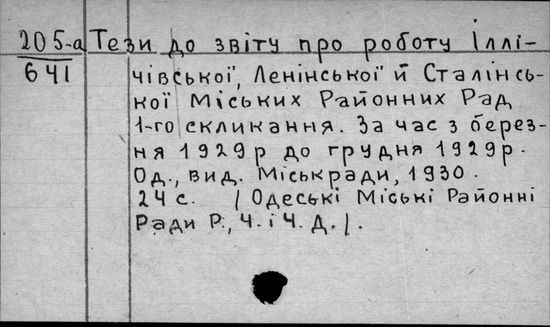 205-а Тези до звіту про роботу Іллі-
641 чівської, Ленінської й Сталінсь-
кої Міських Районних Рад
1-го скликання. За час з берез-
ня 1929р до грудня 1929р.
Од., вид. Міськради, 1930.
24 с. / Одеські Міські Районні
Ради Р., Ч. і Ч. Д. /.